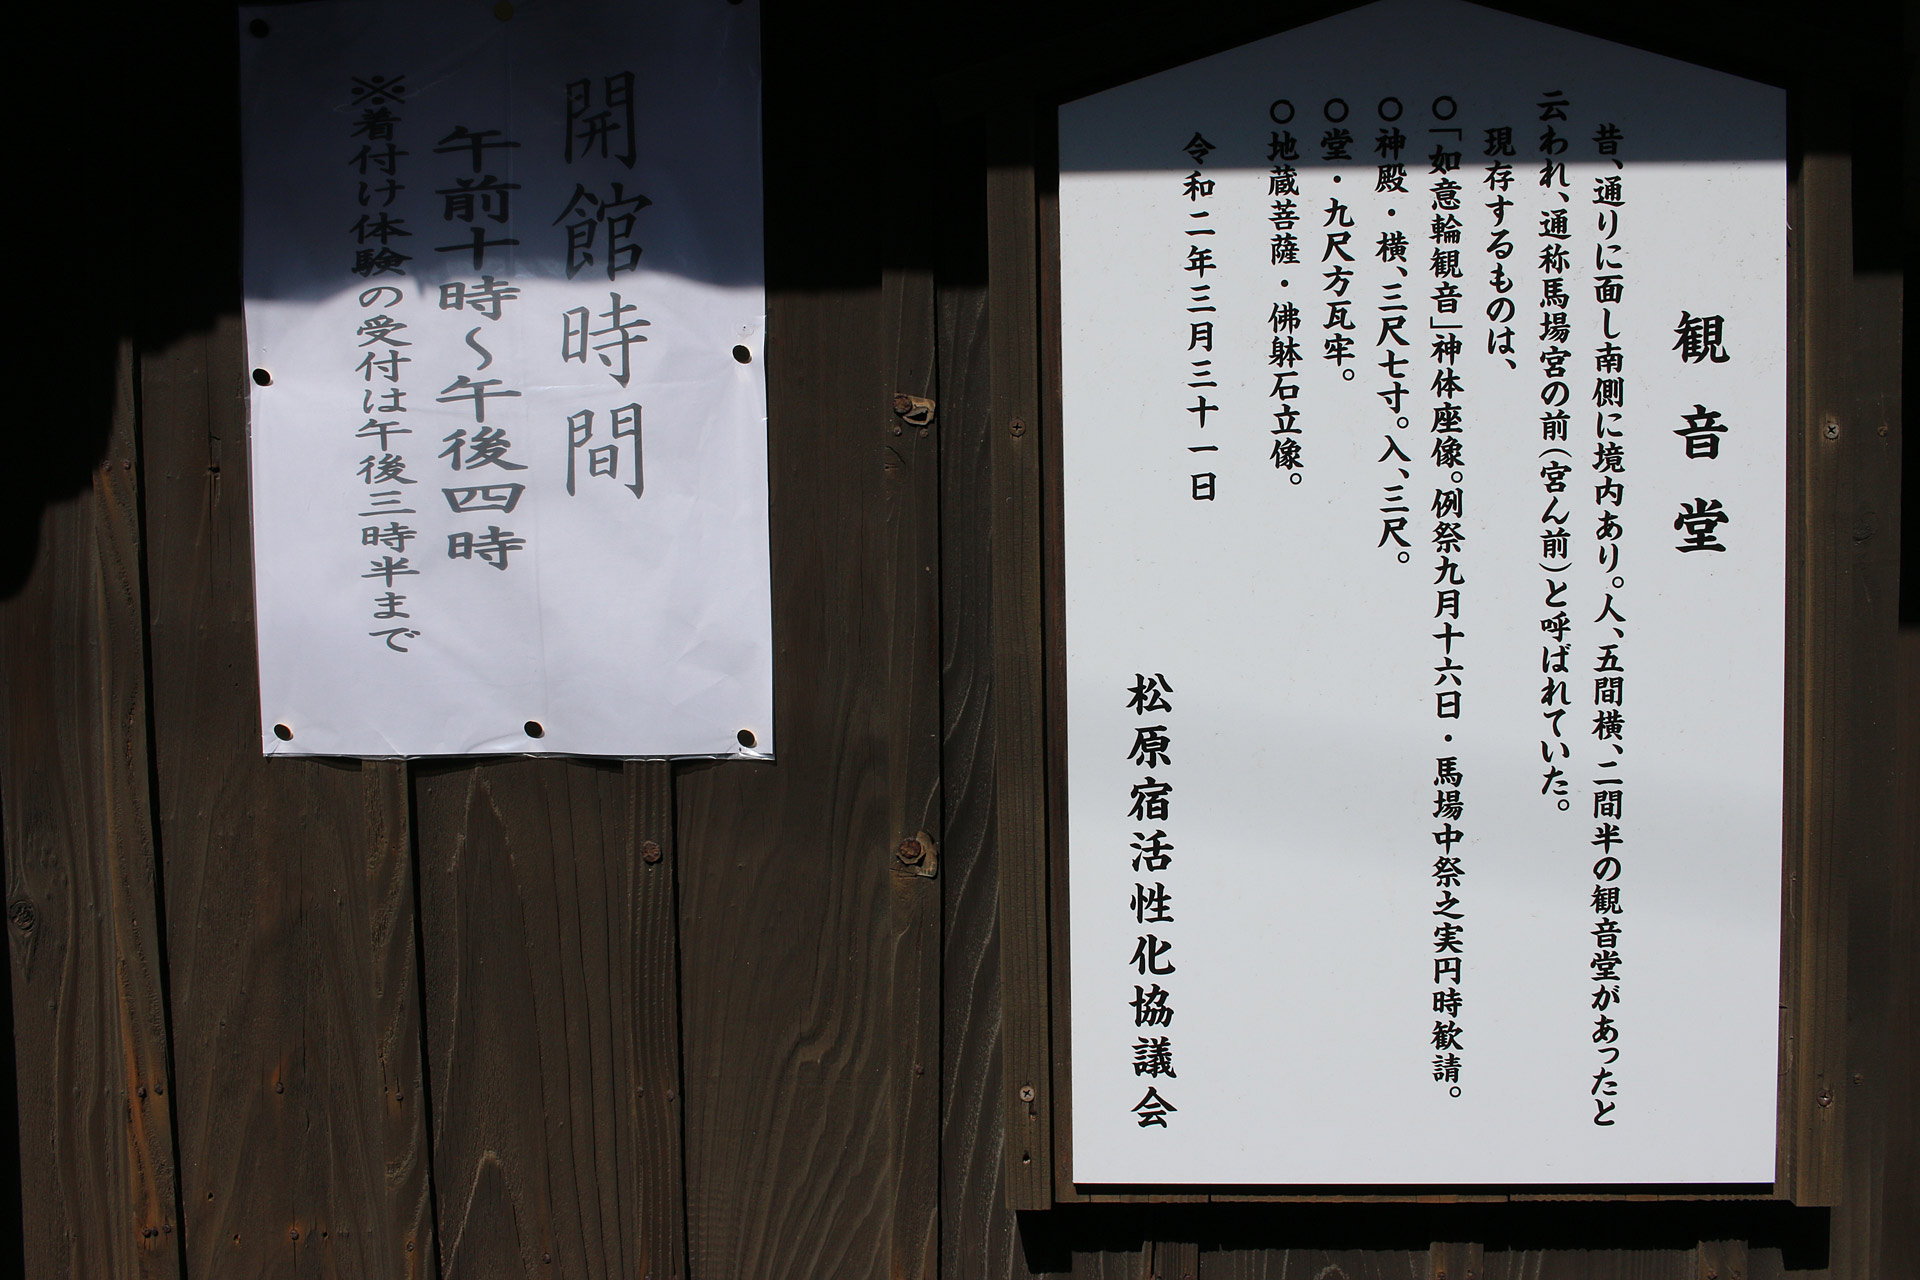 観音堂
昔、通りに面し南側に境内あり。人、五間横、二間半の観音堂があったと
云われ、通称馬場宮の前(宮ん前)と呼ばれていた。
現存するものは、
○「如意輪観音」神体座像。例祭九月十六日・馬場中祭之実円時歓請。
○神殿・横、三尺七寸。入、三尺。
○堂・九尺方瓦牢。
○地蔵菩薩・佛躰石立像。
令和二年三月三十一日
松原宿活性化協議会
開館時間
午前十時～午後四時
※着付け体験の受付は午後三時半まで